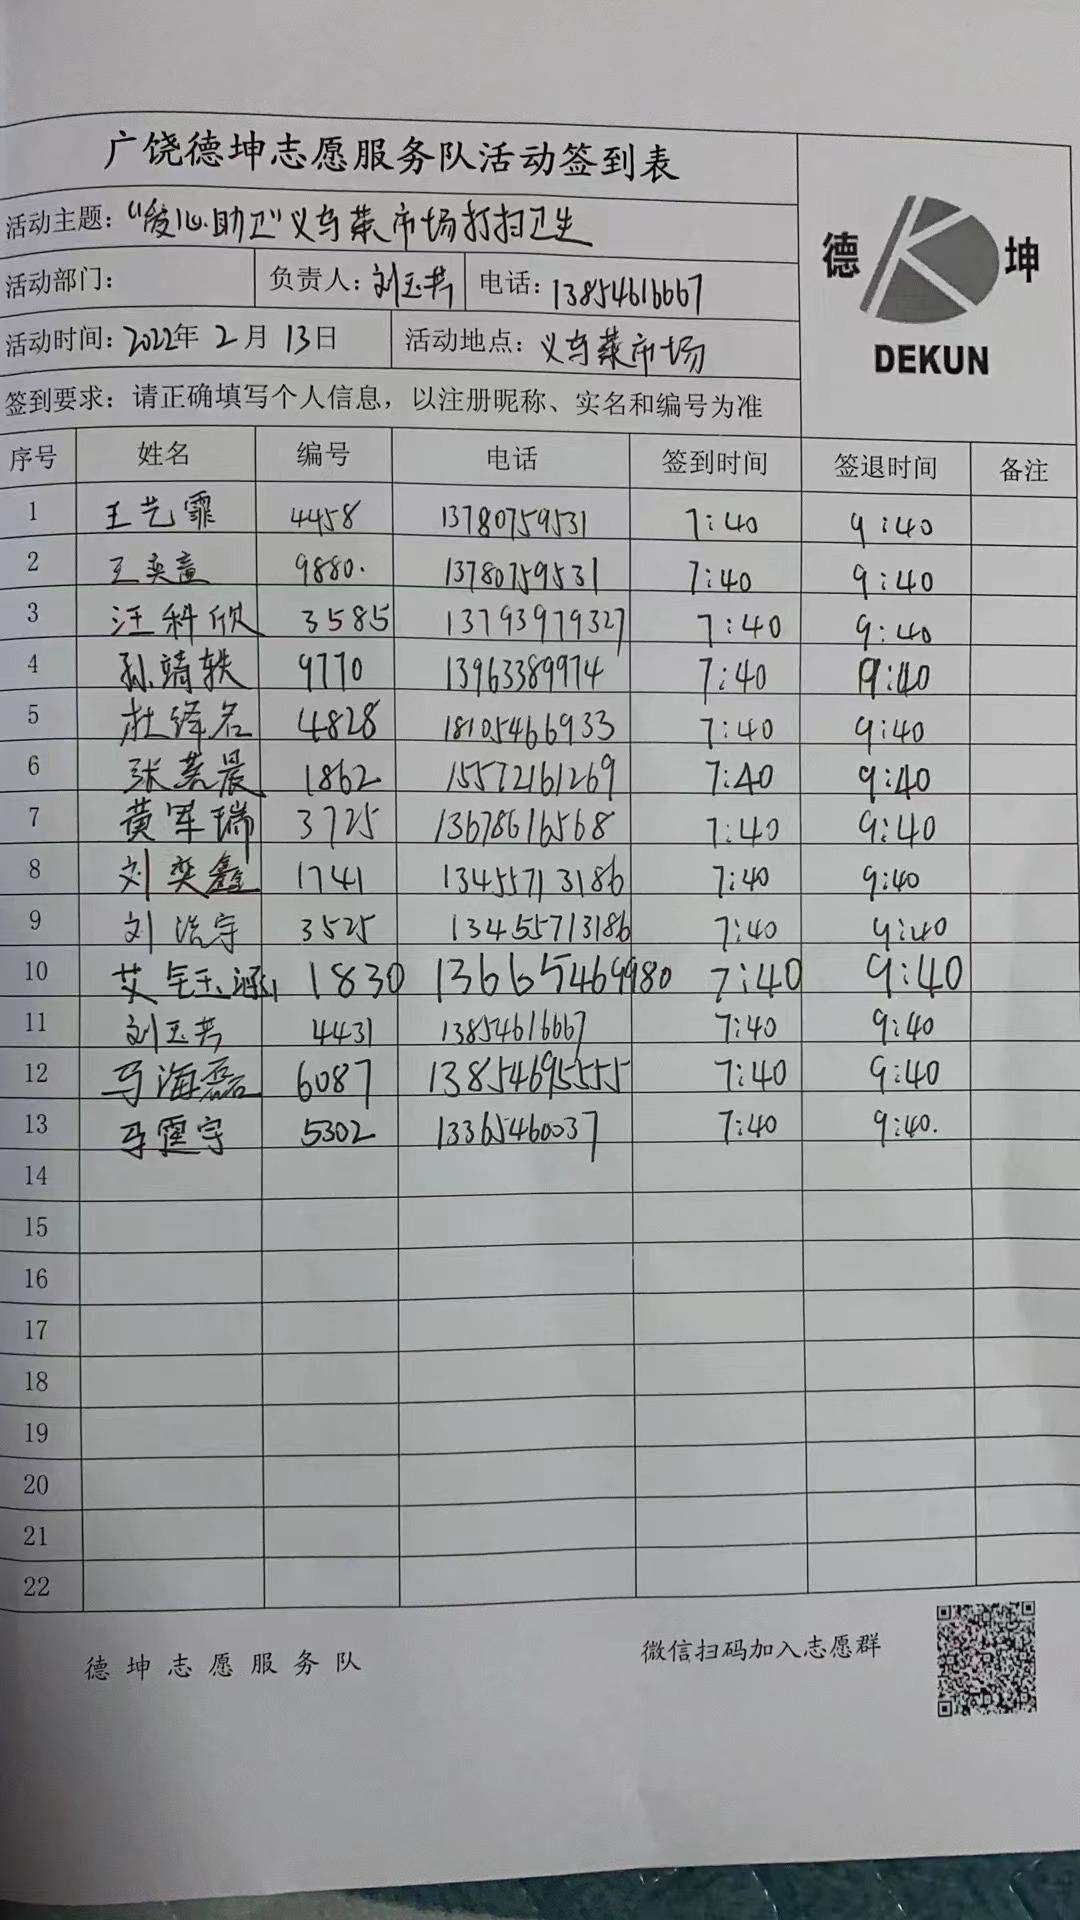 广饶德坤志愿服务队活动签到表
德 坤
DEKUN
活动主题："爱心助卫"义乌菜市场打扫卫生
活动部门： 负责人：刘玉芳 电话：13854616667
活动时间：2022年 2月 13日 活动地点：义乌菜市场
签到要求：请正确填写个人信息，以注册昵称、实名和编号为准
序号 姓名 编号 电话 签到时间 签退时间 备注
1 王艺霏 4458 13780759531 7:40 9:40
2 王奕童 9880. 13780759531 7:40 9:40
3 汪科欣 3585 13793979327 7:40 9:40
4 孙靖轶 9770 13963389974 7:40 9:40
5 杜绎名 4828 18105466933 7:40 9:40
6 张 晨 1862 15572161269 7:40 9:40
7 黄军瑞 3725 13678616568 7:40 9:40
8 刘奕鑫 1741 13455713186 7:40 9:40
9 刘浩宇 3525 13455713186 7:40 9:40
10 艾 玉涵 1830 13665469980 7:40 9:40
11 刘玉芳 4431 13854616667 7:40 9:40
12 马海磊 6087 13854695555 7:40 9:40
13 马霆宇 5302 13365460037 7:40 9:40.
14
15
16
17
18
19
20
21
22
德坤志愿服务队 微信扫码加入志愿群